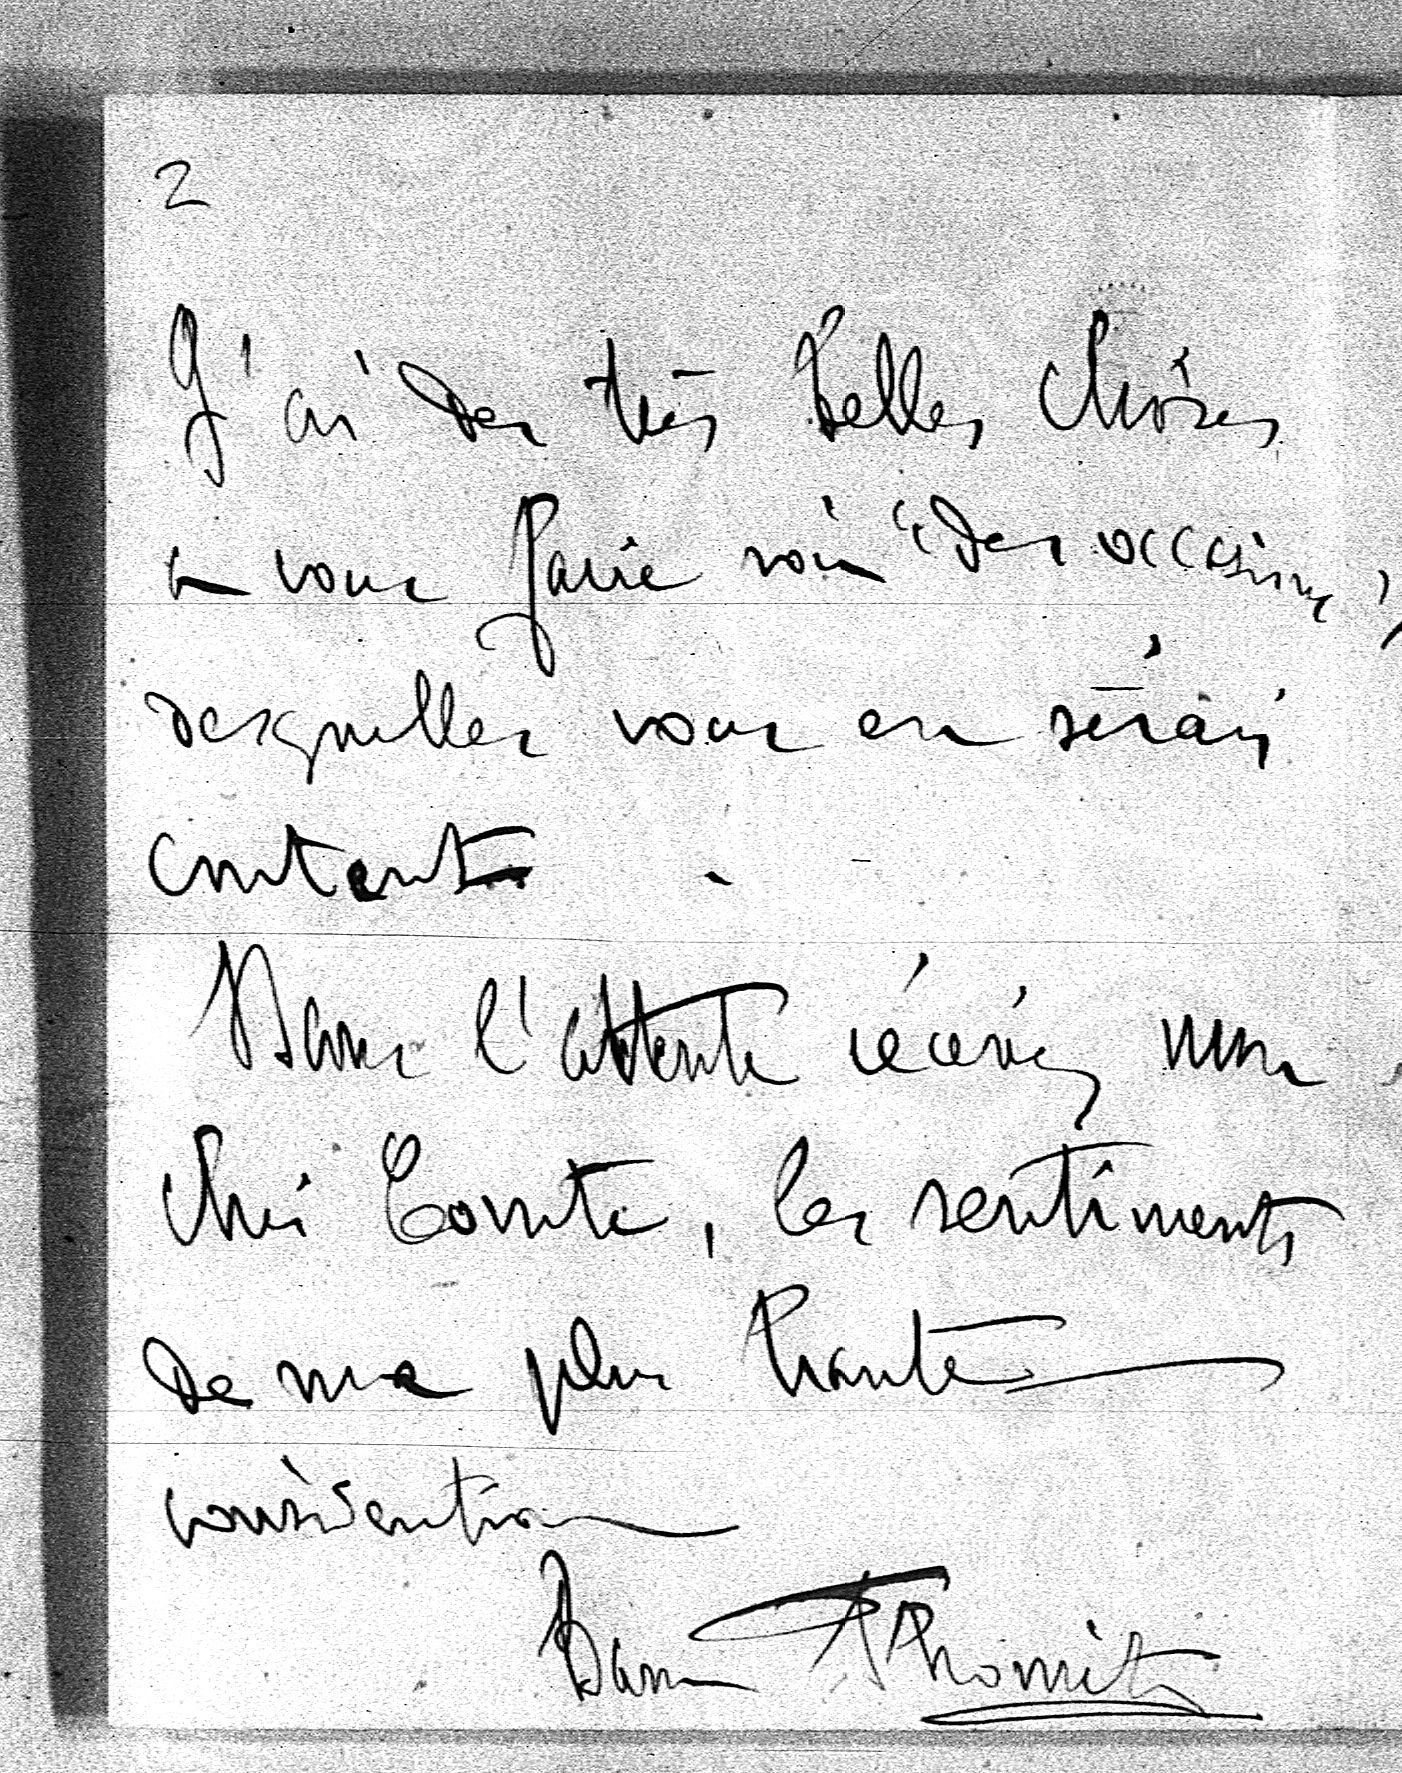 2
J'ai des très belles choses
a vous faire voir "des occasions",
desquelles vous en sérais
contents.
Dans l'attente récévez mon
cher Comte, les sentiments
de ma plus haute
considération
Baron